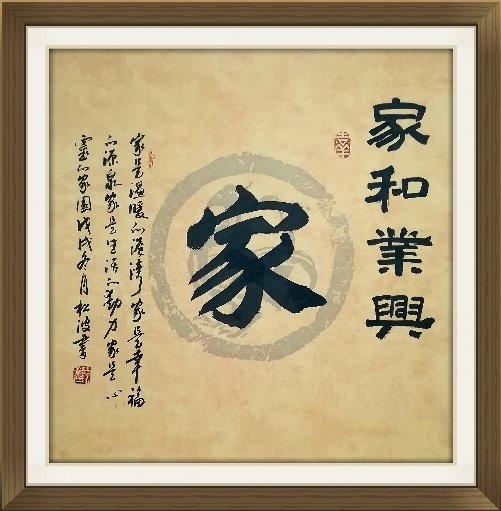 家和業興
家
家是温暖的港湾家是幸福
的源泉家是生活的动力家是心
靈的家園戊戌冬月松波書